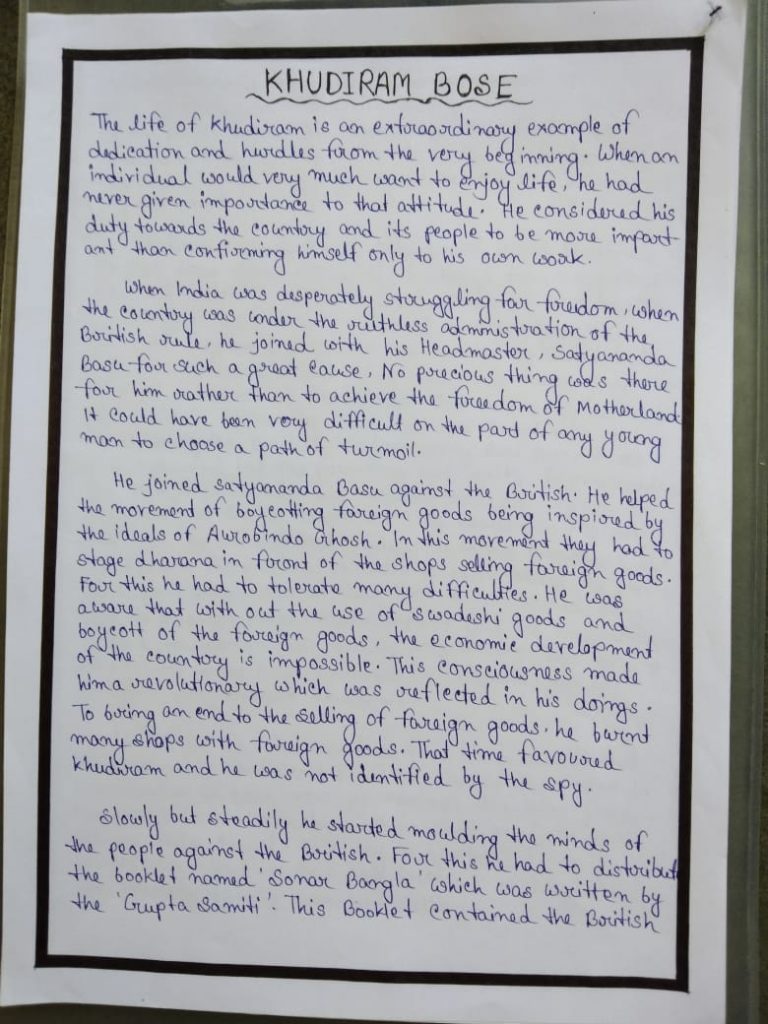 KHUDIRAM BOSE
The life of Khudiram is an extraordinary example of
dedication and hurdles from the very beginning. When an
individual would very much want to enjoy life, he had
never given importance to that attitude. He considered his
duty towards the country and its people to be more import-
ant than confirming himself only to his own work.
When India was desperately struggling for freedom, when
the country was under the ruthless administration of the
British rule, he joined with his Headmaster, Satyananda
Basu for such a great cause, No precious thing was there
for him rather than to achieve the freedom of Motherland.
It could have been very difficult on the part of any young
man to choose a path of turmoil.
He joined Satyananda Basu against the British. He helped
the movement of boycotting foreign goods being inspired by
the ideals of Aurobindo Ghosh. In this movement they had to
stage dharana in front of the shops selling foreign goods.
For this he had to tolerate many difficulties. He was
aware that with out the use of swadeshi goods and
boycott of the foreign goods, the economic development
of the country is impossible. This consciousness made
him a revolutionary which was reflected in his doings.
To bring an end to the selling of foreign goods. he burnt
many shops with foreign goods. That time favoured
Khudiram and he was not identified by the spy.
Slowly but steadily he started moulding the minds of
the people against the British. For this he had to distribute
the booklet named 'Sonar Bangla' which was written by
the 'Gupta Samiti'. This Booklet contained the British